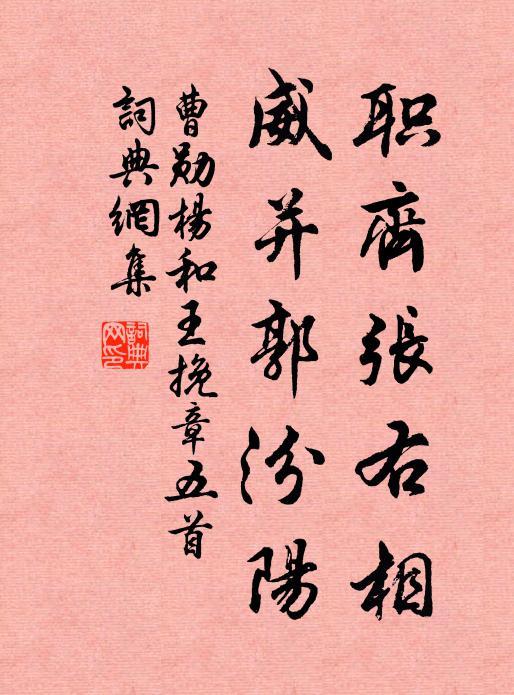 职齊張右相
威并郭汾陽
曹勋楊和王挽章五首
詞典網集
詞典
网印